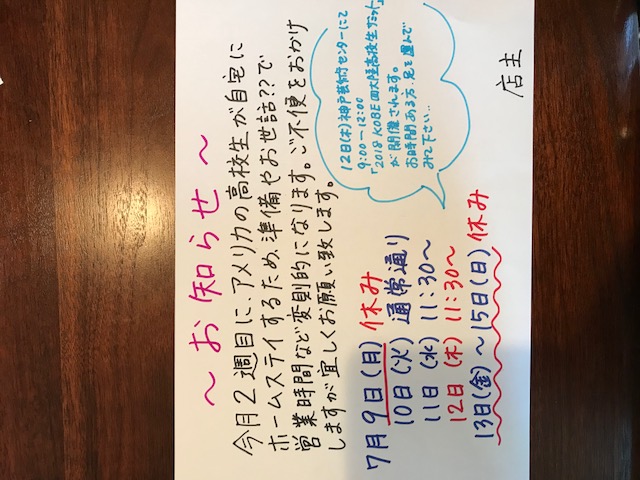 ～お知らせ～
今月2週目に、アメリカの高校生が自宅に
ホームステイするため、準備やお世話??で
営業時間など変則的になります。ご不便をおかけ
しますが宜しくお願い致します。
7月9日(月)休み
10日(火)通常通り
11日(水)11:30～
12日(木)11:30～
13日(金)～15日(日)休み
12日(木)神戸芸術センターにて
9:00-12:00
「2018 KOBE四大陸高校生サミット」
が開催されます。
お時間ある方、足を運んで
みて下さい…
店主